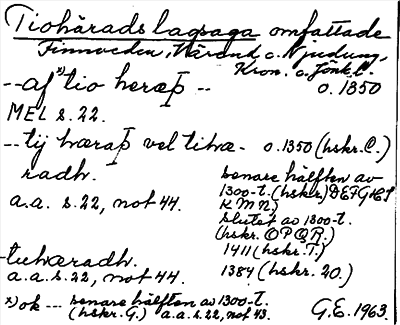 Tiohärads lagsaga omfattade
Finnveden, Värend o. Njudung,
Kron. o. Jönk. l.
-- af x) tio heraþ -- o. 1350
MEL s. 22.
-- tij hæraþ vel tihæ- o. 1350 (hskr. C.)
radh. senare hälften av
1300-t. (hskr.) DEFGHI
a.a. s. 22, not 44. K M N.)
slutet av 1300-t.
(hskr. O P Q R.)
-tiuhæradh. 1411 (hskr. T.)
a.a. s. 22, not 44. 1384 (hskr. 20.)
x) ok --- senare hälften av 1300-t.
(hskr. G.) a.a. s. 22, not 43. G.E. 1963.